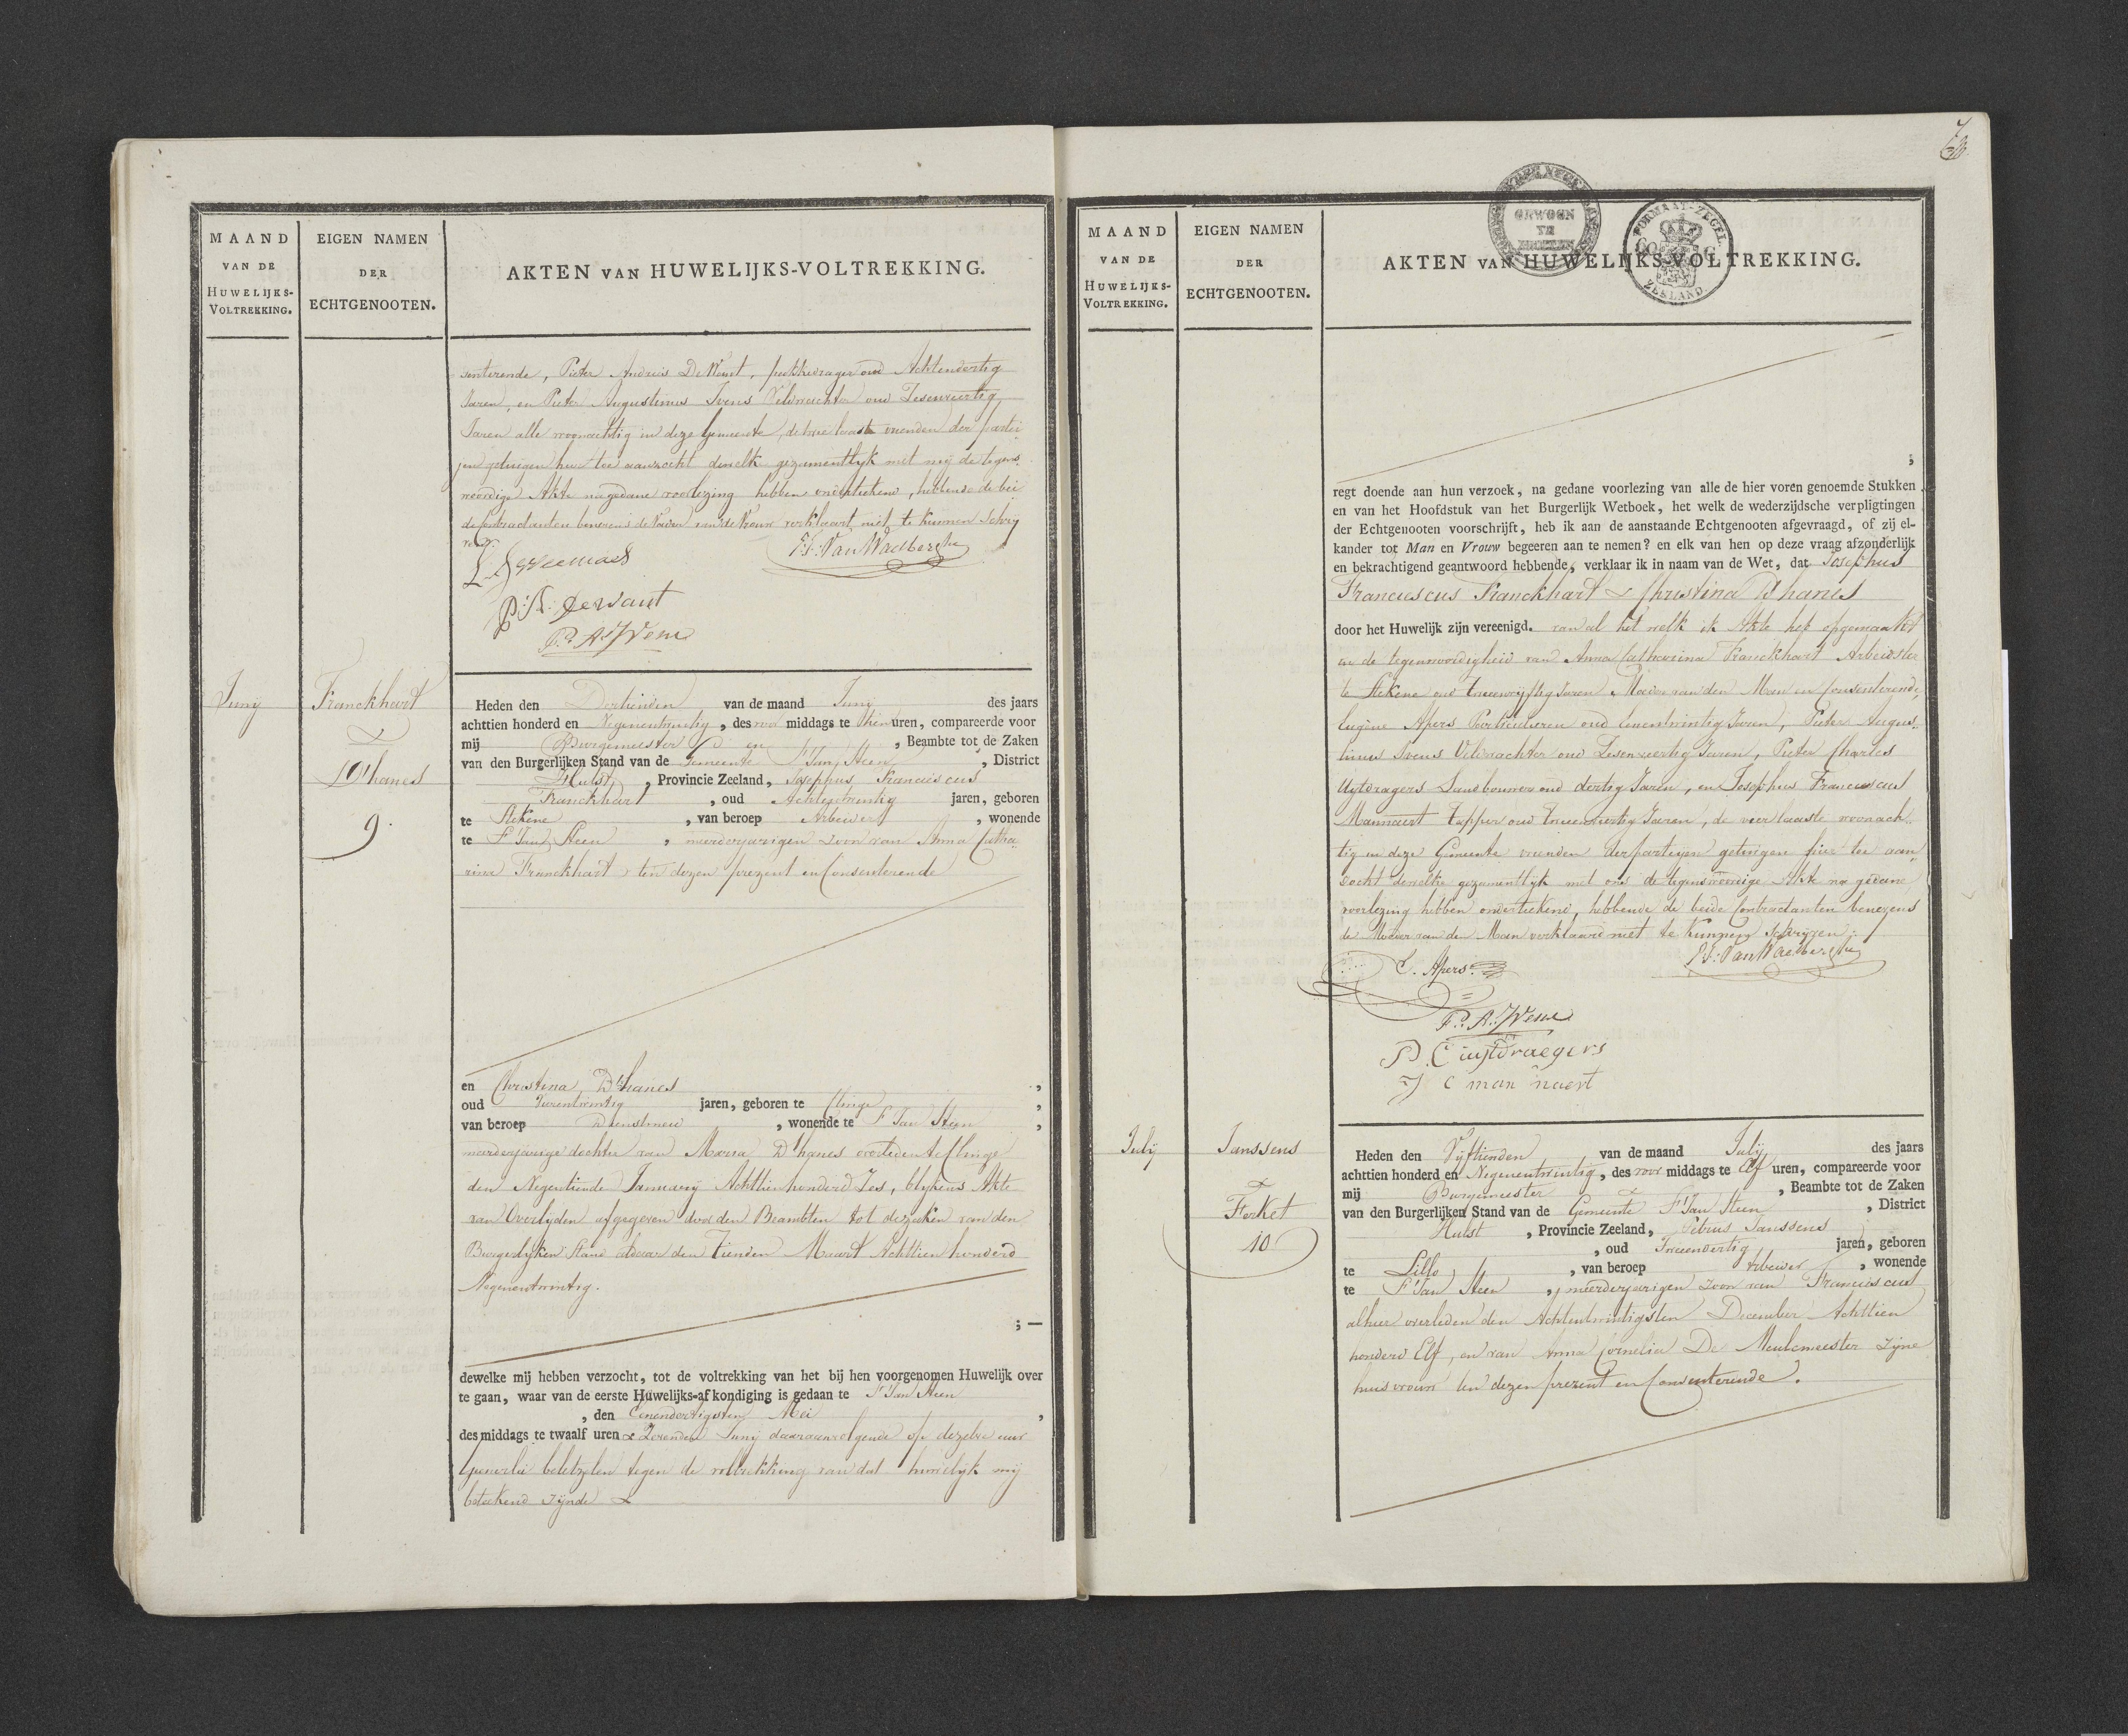 MAAND
VAN DE
HUWELIJKS-
VOLTREKKING.
EIGEN NAMEN
DER
ECHTGENOOTEN.
AKTEN VAN HUWELIJKS-VOLTREKKING.
senterende, Pieter Andreis De Want, oud Achtendertig
Jaren, en Pieter Augustinus Ivens Veldwachter oud Zesenveertig
Jaren alle woonachtig in deze Gemeente, de twee laaste vrienden der partei
jen getuigen hier toe aanzocht dewelke gezamentlyk met mij de tegens
woordige Akte na gedane voorlezing hebben onderteekend, hebbende de bei
de Contractanten benevens de Vader van de Vrouw verklaart niet te kunnen schrij
ven.
P.F. Van Waelberghe
P: A: Dewant
P: A: Ivens
Junij
Franckhart
&
D'hanes
9.
Heden den Dertienden van de maand Junij des jaars
achttien honderd en Negenentwintig, des voor middags te thien uren, compareerde voor
mij Burgemeester en , Beambte tot de Zaken
van den Burgerlijken Stand van de Gemeente St Jan Steen , District
Hulst , Provincie Zeeland, Josephus Franciscus
Franckhart , oud Achtentwintig jaren, geboren
te Stekene , van beroep Arbeider , wonende
te St Jan Steen , meerderjarigen zoon van Anna Catha
rina Franckhart, ten dezen prezent en Consenterende
en Christina D'hanes ,
oud jaren, geboren te Clinge ,
van beroep Dienstmeid , wonende te St Jan Steen ,
meerderjarige dochter van Maria D'hanes overleden te Clinge
den Negentiende January Achttien honderd Zes, blykens Akte
van Overlyden afgegeven door den Beambten tot de zaken van den
Burgerlyken Stand aldaar den Tienden Maart Achttien honderd
Negenentwintig.
; —
dewelke mij hebben verzocht, tot de voltrekking van het bij hen voorgenomen Huwelijk over
te gaan, waar van de eerste Huwelijks-afkondiging is gedaan te St Jan Steen
, den Eenendertigsten Mei ,
des middags te twaalf uren & Zevenden Junij daaraanvolgende op dezelve uur
Geenerlei beletzelen tegen de voltrekking van dat huwelijk mij
beteekend zijnde &
MAAND
VAN DE
HUWELIJKS-
VOLTREKKING.
EIGEN NAMEN
DER
ECHTGENOOTEN.
AKTEN VAN HUWELIJKS-VOLTREKKING.
FORMAAT-ZEGEL.
60 C
ZEELAND
;
regt doende aan hun verzoek, na gedane voorlezing van alle de hier voren genoemde Stukken
en van het Hoofdstuk van het Burgerlijk Wetboek, het welk de wederzijdsche verpligtingen
der Echtgenooten voorschrijft, heb ik aan de aanstaande Echtgenooten afgevraagd, of zij el-
kander tot Man en Vrouw begeeren aan te nemen? en elk van hen op deze vraag afzonderlijk
en bekrachtigend geantwoord hebbende, verklaar ik in naam van de Wet, dat Josephus
Franciscus Franckhart & Christina D'hanes
door het Huwelijk zijn vereenigd. van al het welk ik Akte heb opgemaakt
in de tegenwoordigheid van Anna Catharina Franckhart Arbeidster
te Stekene oud tweevyftig Jaren, Moeder van den Man en Consenterende,
Eugène Apers Particulieren oud Eenentwintig Jaren, Pieter Augus-
tinus Ivens Veldwachter oud Zesenveertig Jaren, Pieter Charles
Uytdragers Landbouwer oud dertig Jaren, en Josephus Franciscus
Mannaert tapper oud Jaren, de vier laaste woonach-
tig in deze Gemeente vrienden der partijen getuigen hier toe aan
zocht dewelke gezamentlyk met ons de tegenswoordige Akte na gedane
voorlezing hebben onderteekend, hebbende de beide Contractanten benevens
de Moeder van den Man verklaard niet te kunnen schrijven.
P.F. Van Waelberghe
E. Apers
P: A: Ivens
P C uijtdraegers
J c man naert
July
Janssens
&
Forket
10
Heden den Vijftienden van de maand July des jaars
achttien honderd en Negenentwintig, des voor middags te Elf uren, compareerde voor
mij Burgemeester , Beambte tot de Zaken
van den Burgerlijken Stand van de Gemeente St Jan Steen , District
Hulst , Provincie Zeeland, Janssens
, oud Tweendertig jaren, geboren
te Lillo , van beroep Arbeider , wonende
te St Jan Steen , meerderjarigen zoon van Franciscus
alhier overleden den Achtentwintigsten December Achttien
honderd Elf, en van Anna Cornelia De Meulemeester zijne
huisvrouw ten dezen prezent en Consenterende.